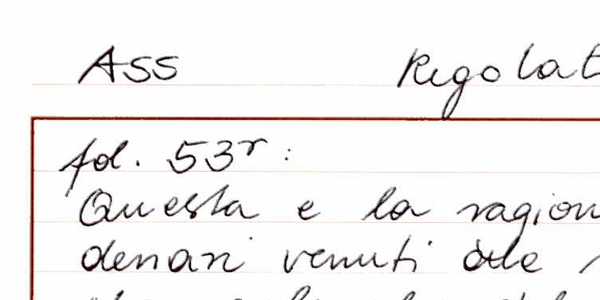 Ass Regolat
fol. 53r:
Questa e la ragion
denari venuti